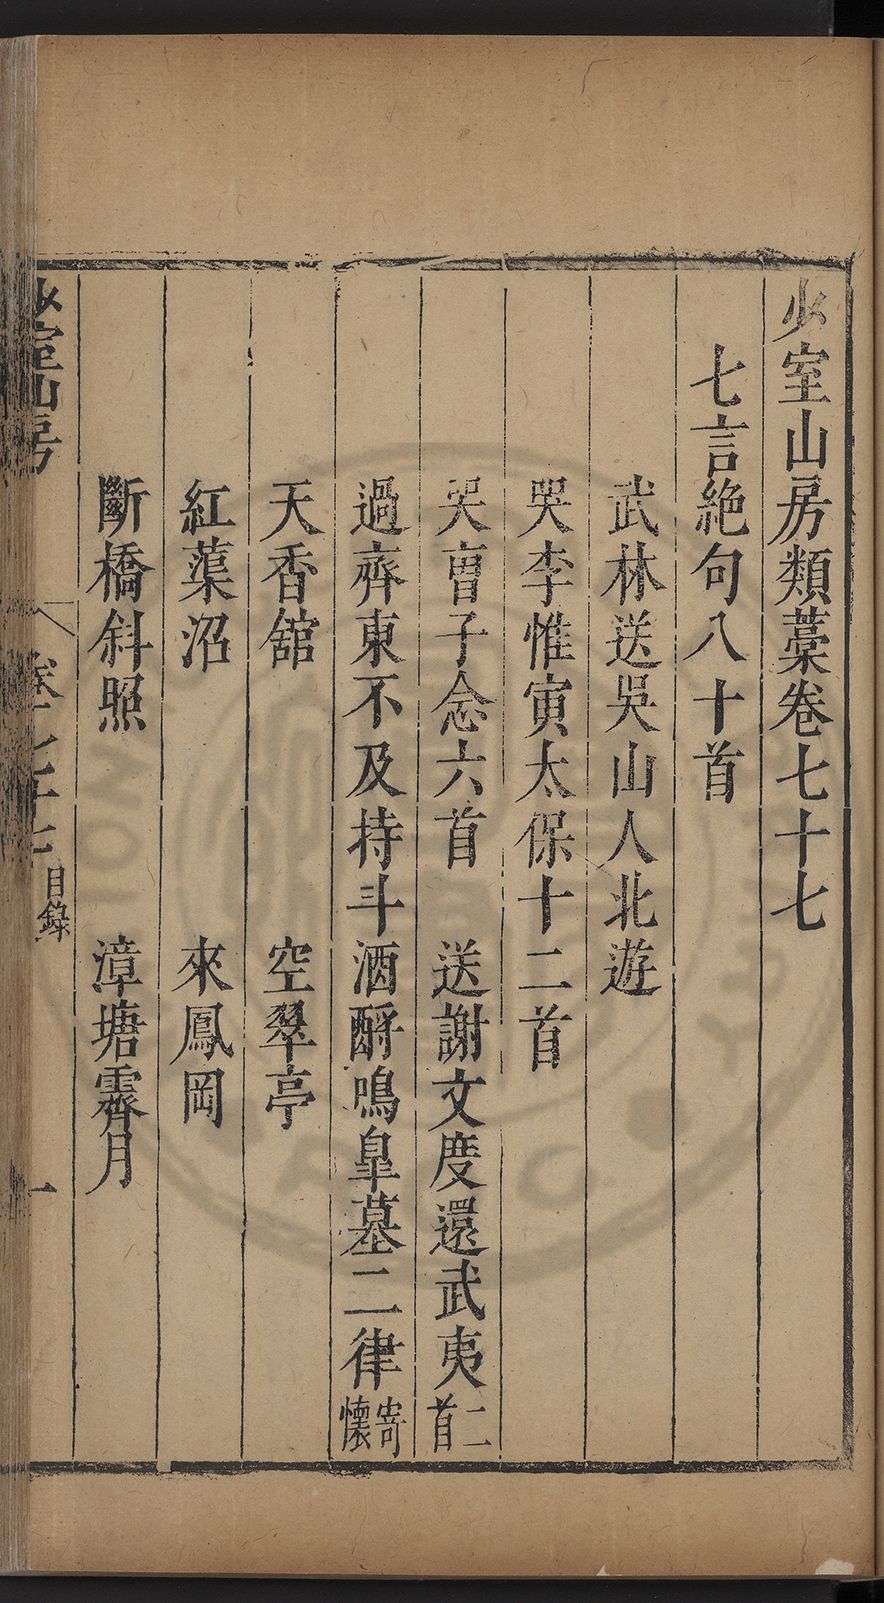 少室山房類藁卷七十七
七言絶句八十首
武林送吳山人北遊
哭李惟寅太保十二首
哭曹子念六首　送謝文度還武夷二首
過齊東不及持斗酒酹鳴臯墓二律寄懷
天香館　空翠亭
紅蕖沼　來鳳岡
斷橋斜照　漳塘霽月
少室山房　卷七十七　目錄　一